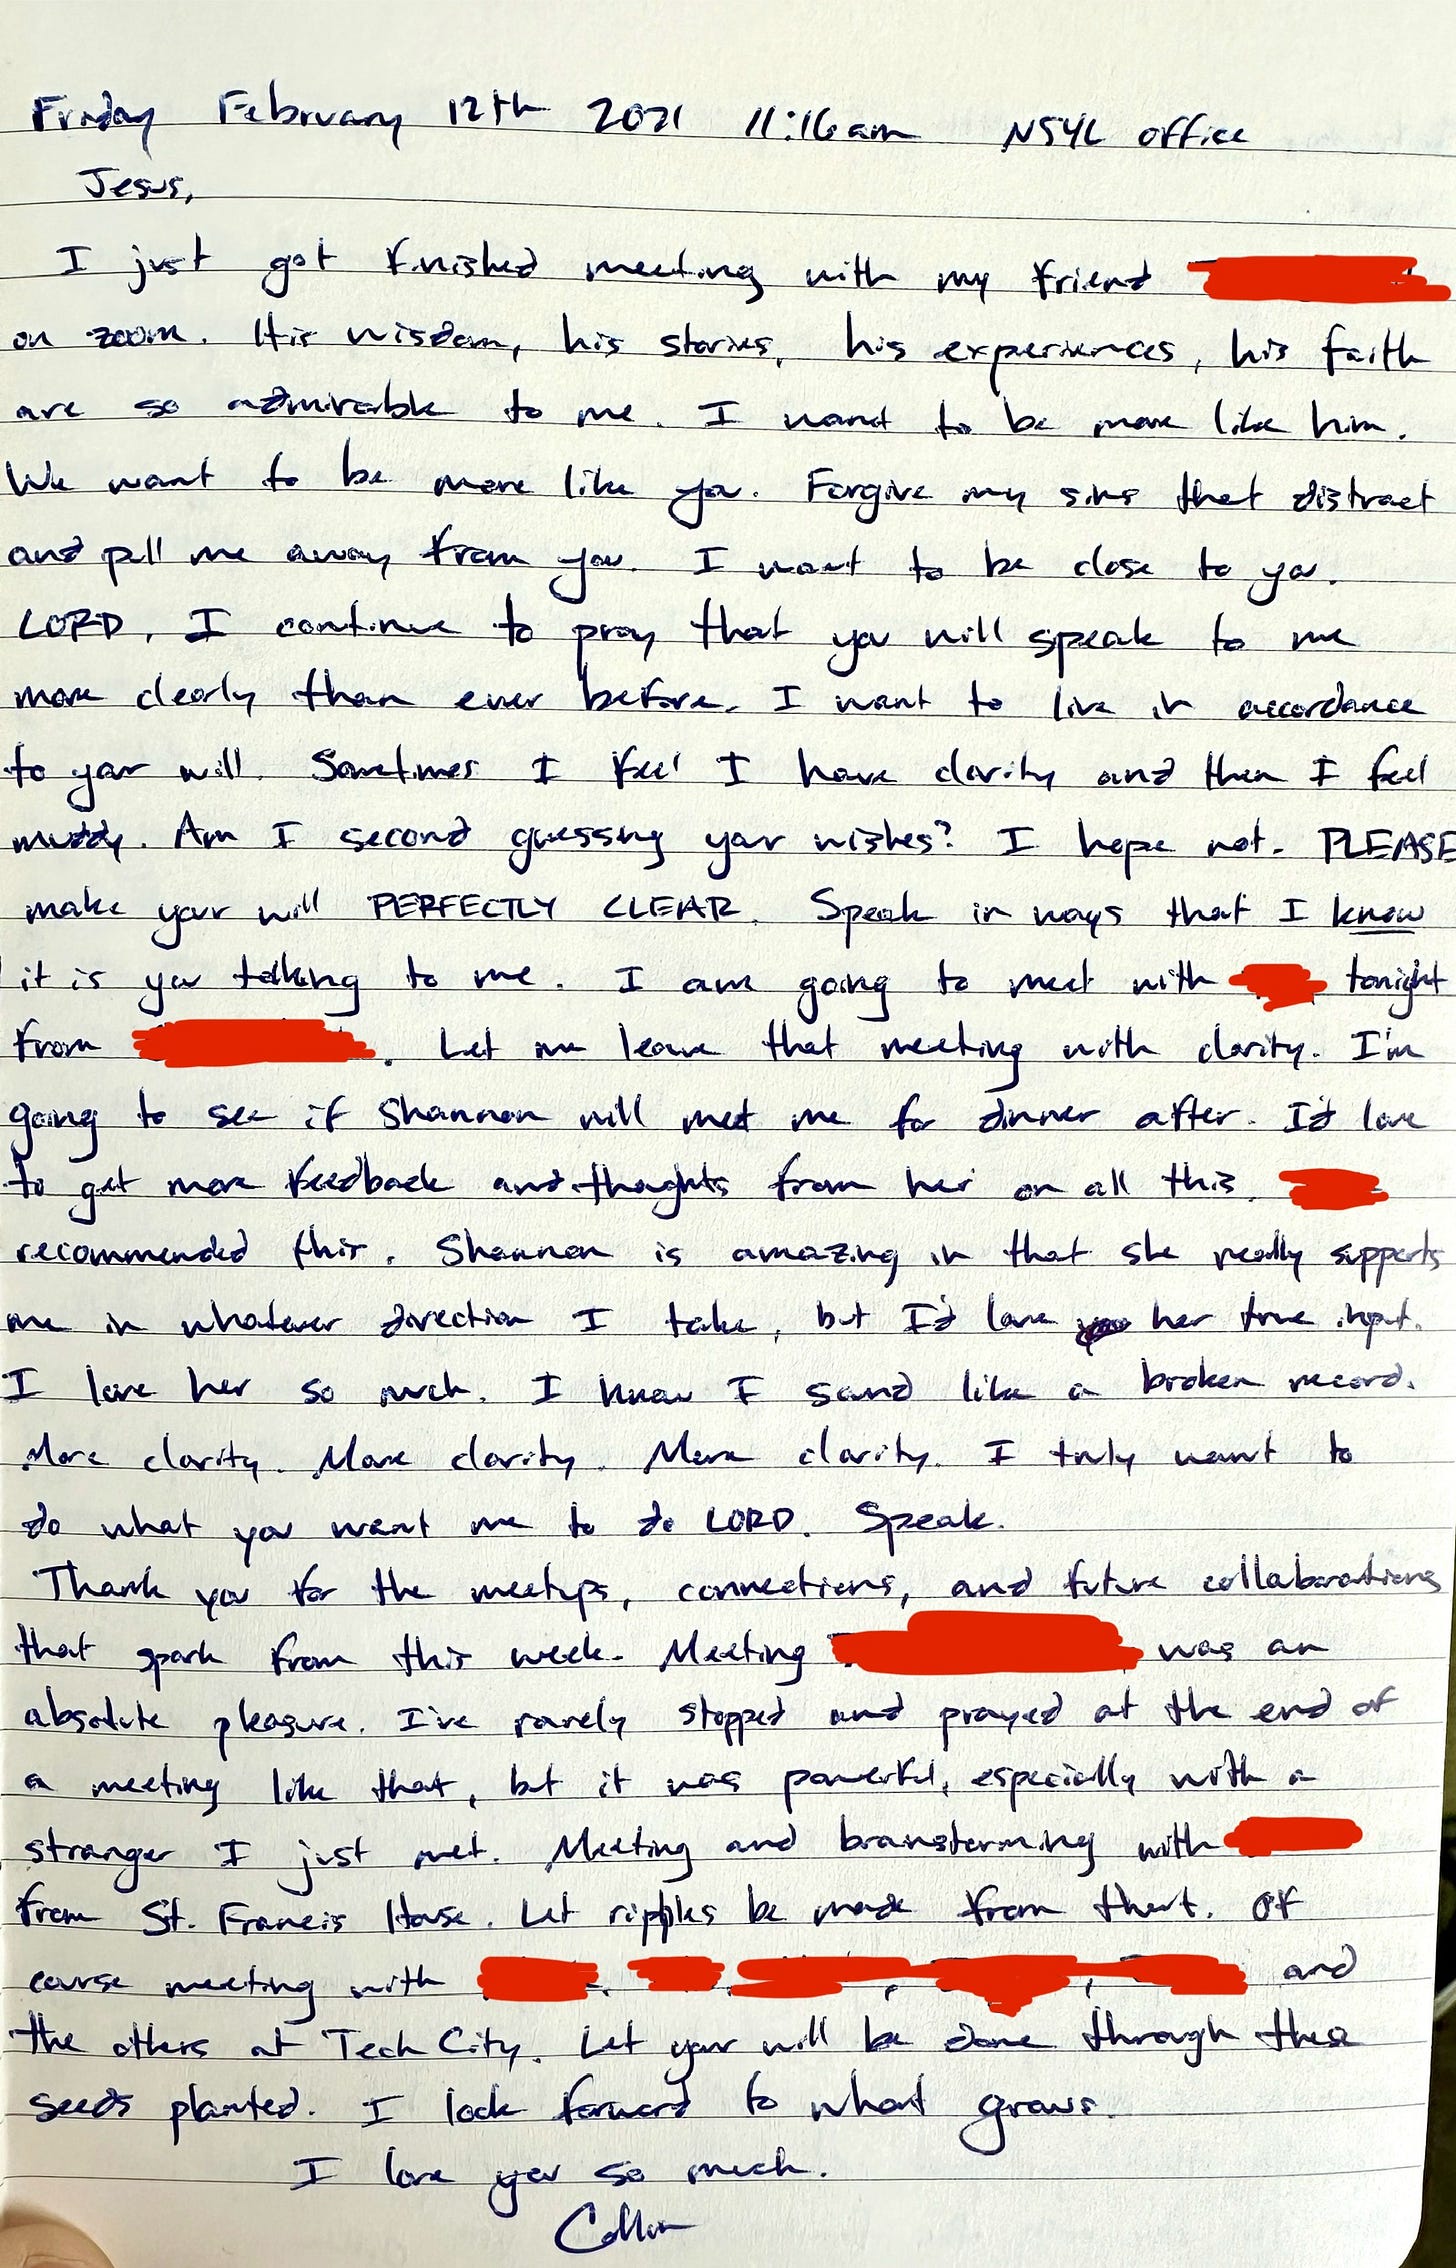 Friday February 12th 2021 11:16am NSYL office
Jesus,
I just got finished meeting with my friend
on zoom. His wisdom, his stories, his experiences, his faith
are so admirable to me. I want to be more like him.
We want to be more like you. Forgive my sins that distract
and pull me away from you. I want to be close to you.
LORD, I continue to pray that you will speak to me
more clearly than ever before. I want to live in accordance
to your will. Sometimes I feel I have clarity and then I feel
muddy. Am I second guessing your wishes? I hope not. PLEASE
make your will PERFECTLY CLEAR. Speak in ways that I know
it is you talking to me. I am going to meet with tonight
from . Let me leave that meeting with clarity. I'm
going to see if Shannon will met me for dinner after. I'd love
to get more feedback and thoughts from her on all this.
recommended this. Shannon is amazing in that she really supports
me in whatever direction I take, but I'd love her true input.
I love her so much. I know I sound like a broken record.
More clarity. More clarity. More clarity. I truly want to
do what you want me to do LORD. Speak.
Thank you for the meetups, connections, and future collaborations
that spark from this week. Meeting was an
absolute pleasure. I've rarely stopped and prayed at the end of
a meeting like that, but it was powerful, especially with a
stranger I just met. Meeting and branstorming with
from St. Francis House. Let ripples be made from that. Of
course meeting with , , and
the others at Tech City. Let your will be done through these
seeds planted. I look forward to what grows.
I love you so much.
Collin